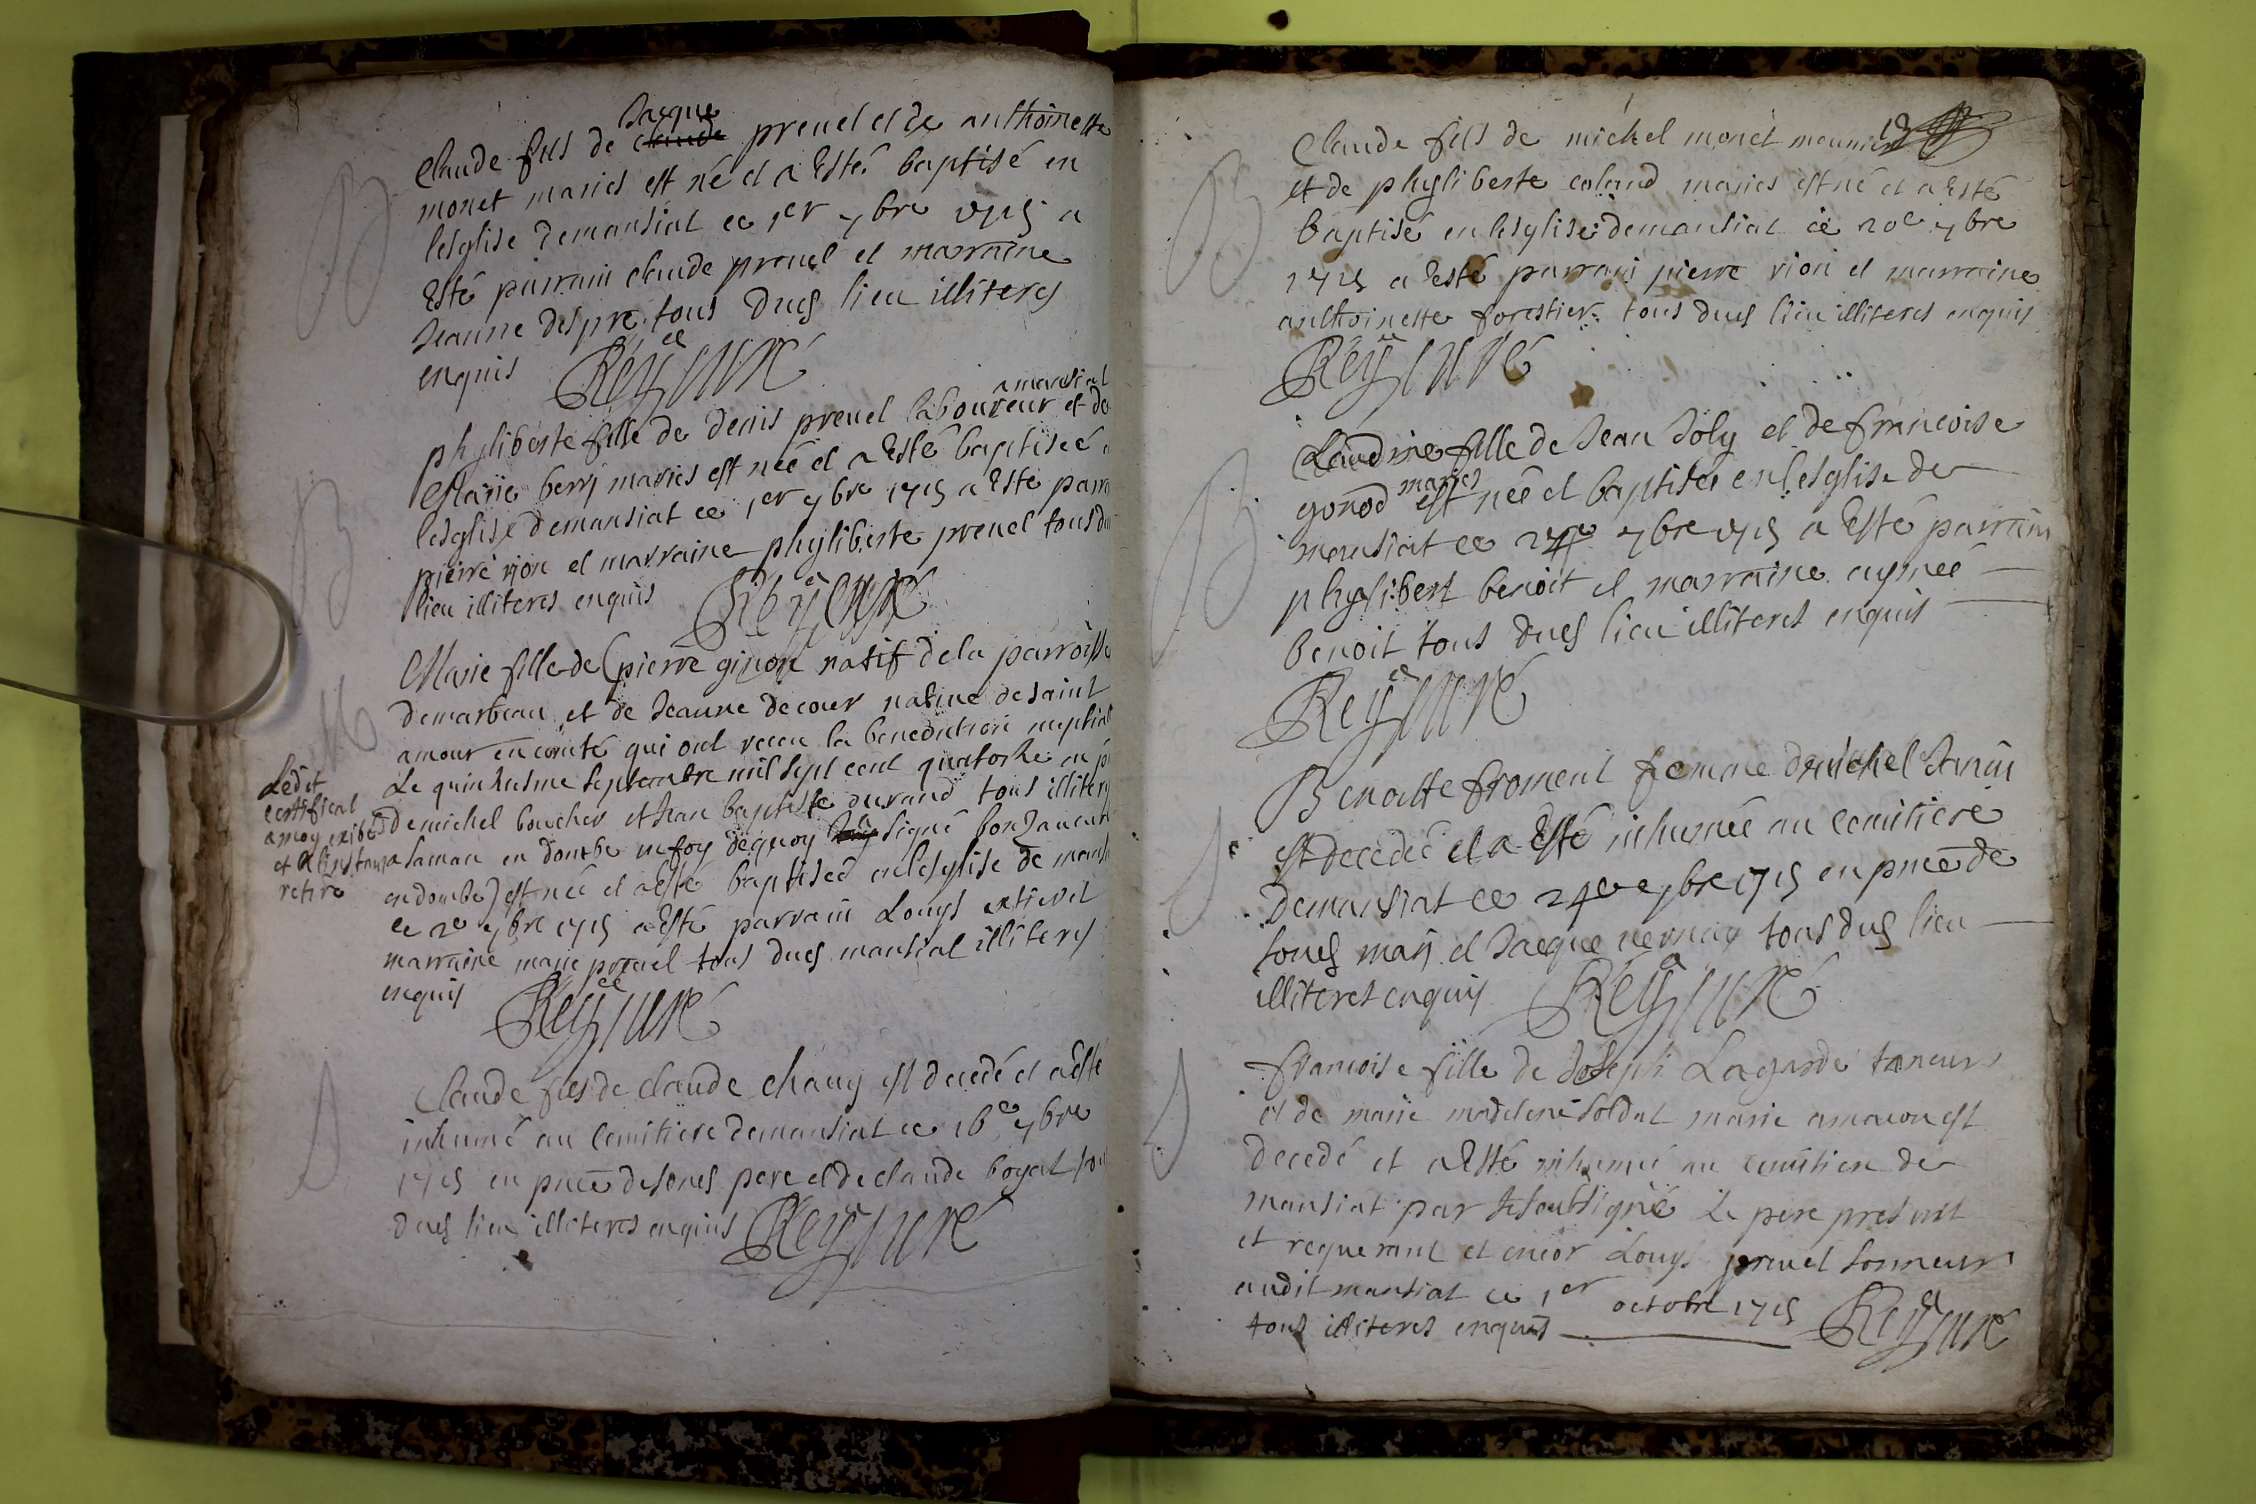 B
Claude fils de Jacque claude preuel et de anthoinette
monet maries est né et a esté baptisé en
lesglise demansiat ce 1er 7bre 1715 a
Esté parrain claude preuel et marraine
Jeanne despre tous dues lieu illiteres
enquis Rey curé
B
phyliberte fille de denis preuel laboureur amansiat et de
Marie berry maries est neé et a Esté baptiseé
lesglise demansiat ce 1er 7bre 1715 a Este parra
pierre rion et marraine phyliberte preuel tous du
lieu illiteres enquis Rey curé
Marie fille de (pierre ginon natif dela parroisse
demarboau et de Jeanne decour natiue desaint
amour en comté qui ont receu la benediction nuptial
Le quinziesme septembre mil sept cent quatorze en p
demichel boucher et Jean baptiste durand tous illiteres
en dombe en foy dequoy signé
en dombe) est neé et aesté baptiseé enlesglise de mans
ce 2e 7bre 1715 aEsté parrain Louys et
marraine marie preuel tous dues mansiat illiteres
enquis Rey curé
Ledit
certificat
amoy exibé
et alinstant
retiré
Claude fils de claude chaug est decedé et aesté
inhumé au cemitiere demansiat ce 16e 7bre
1715 en pnce de sones pere et de claude boyat
dues lieu illiteres enquis Rey curé
19
B
Claude fils de michel monet meunier
et de phyliberte coland maries est né et a esté
baptisé en lesglise demansiat ce 20e 7bre
1715 a esté parrain pierre rion et marraine
anthoinette forestier tous dues lieu illiteres enquis
Rey curé
B
Claudine fille de Jean Joly et de francoise
gonod maries est neé et baptiseé en lesglise de
mansiat ce 24e 7bre 1715 a Esté parrain
phylibert benoit et marraine aymeé
benoit tous dues lieu illiteres enquis
Rey curé
Benoitte froment femme de michel
est decedeé et a Esté inhumeé au cemitiere
demansiat ce 24e 7bre 1715 en pnce de
sones mary et Jacque vernay tous dus lieu
illiteres enquis Rey curé
francoise fille de Joseph Lagarde taneur
et de marie madelene soldat marie amacon est
decedé et a Esté inhumé au cemitiere de
mansiat par Je soubsigné Le pere present
et requerant et encor Louys preuel sonneur
audit mansiat ce 1er octobre 1715
tous illiteres enquis Rey curé